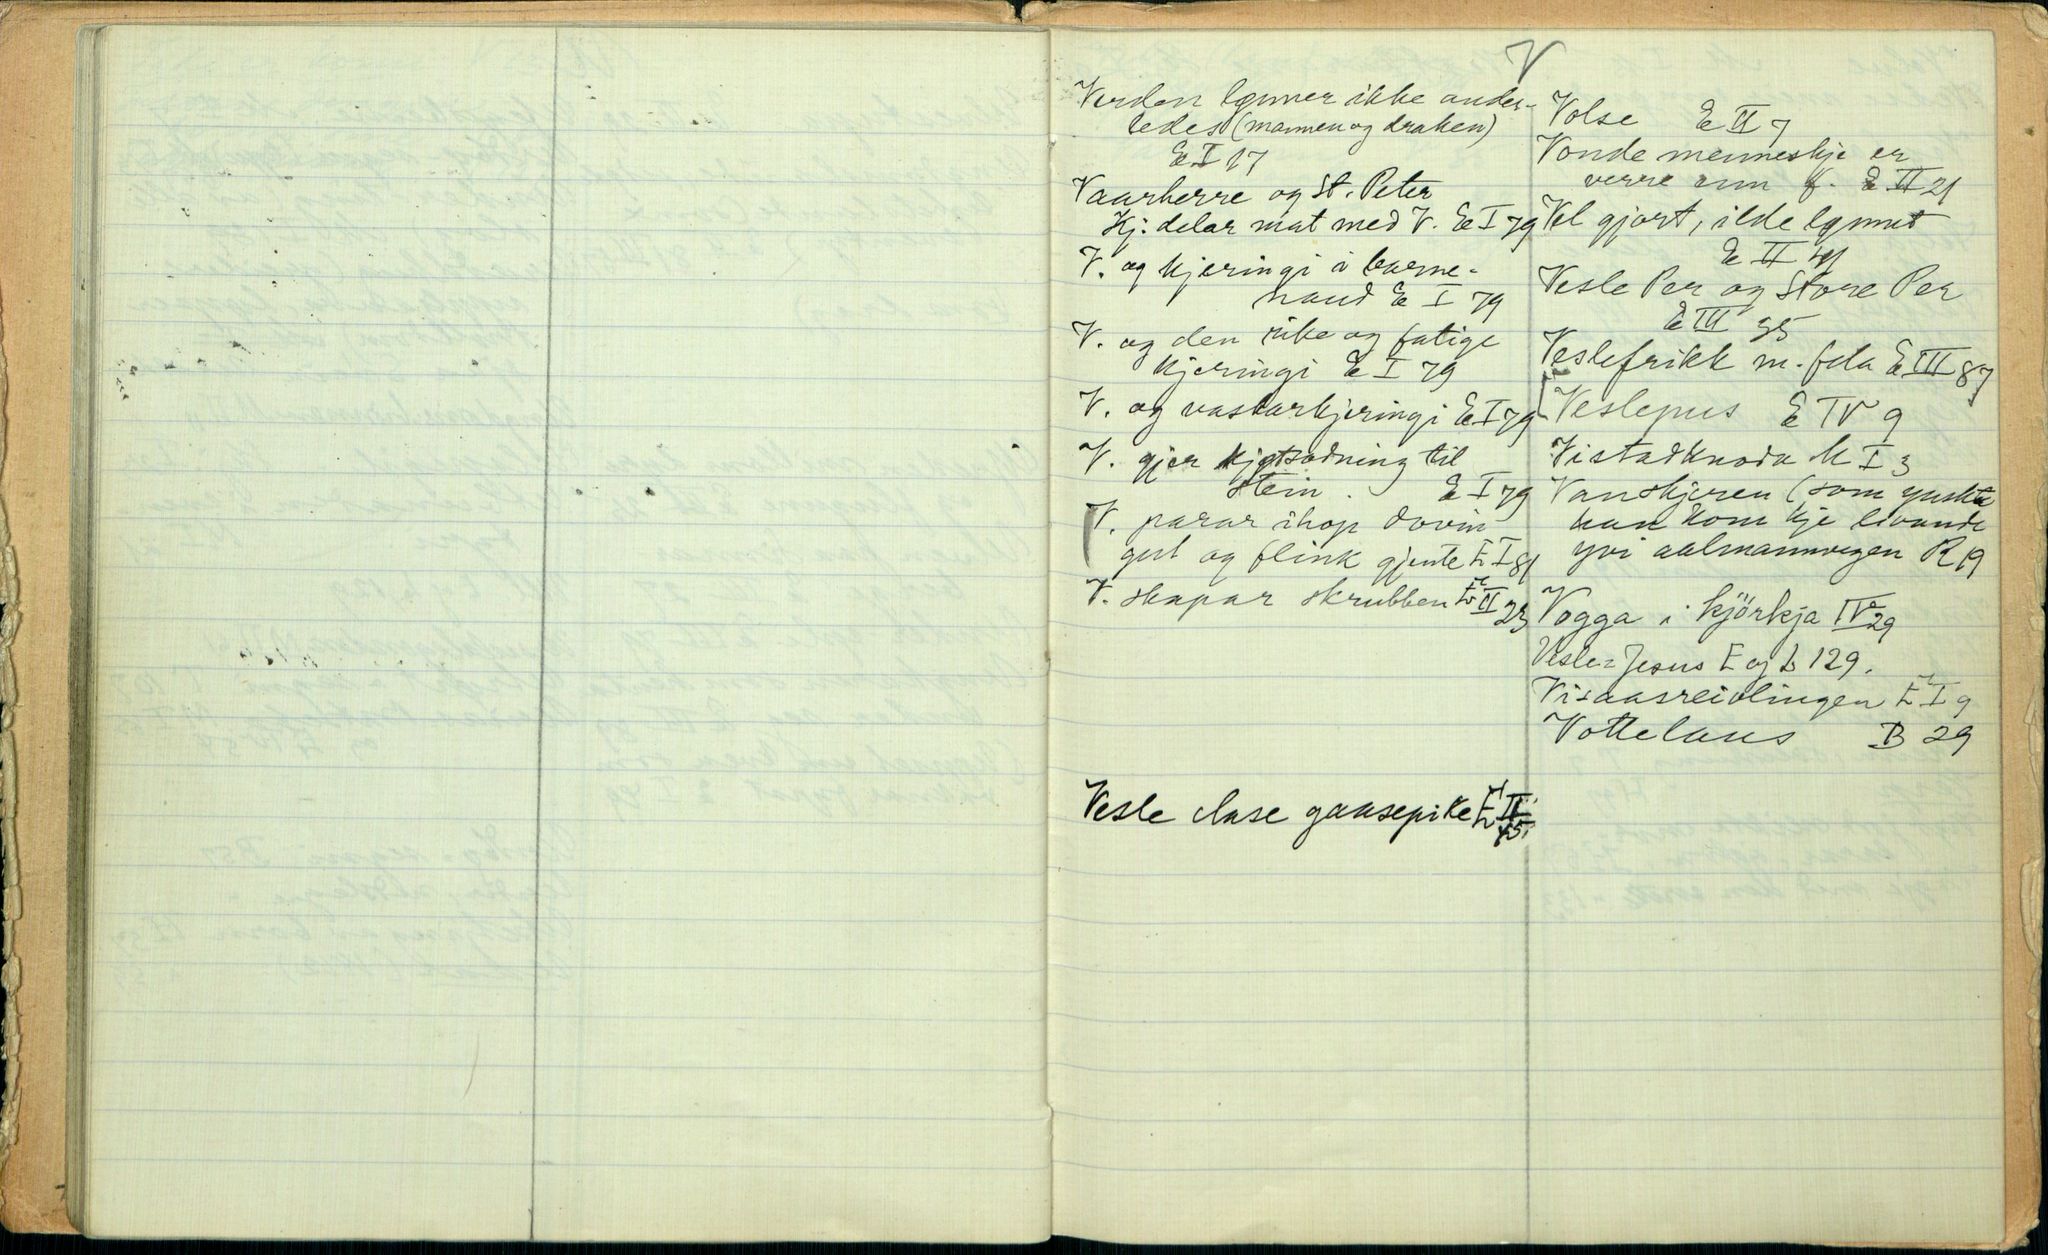 V
Verden lønner ikke ander-
ledes (mannen og draken)
E I 17
Vaarherre og St. Peter
Kj. delar mat med V. E I 79
V. og kjeringi i barne-
naud E I 79
V. og den rike og fatige
kjeringi E I 79
V. og vaskarkjeringi E I 79
V. gjer kjøtsodning til
stein. E I 79
V. parar ihop dovin
gut og flink gjente E I 81
V. skapar skrubben E II 23
Vesle Aase gaasepike E II 45
Volse E II 7
Vonde menneskje er
verre enn f. E II 21
Vel gjort, ilde lønnet
E II
Vesle Per og Store Per
E III 35
Veslefrikk m. fela E III 87
Veslepus E IV 9
Vistadknoda M I 3
Vanskjeren (som ynskte
han kom kje livande
yvi aalmannvegen R 19
Vogga i kjörkja IV 29
Vesle-Jesus E og L 129.
Visaasreidlingen E I 9
Vottelaus B 29